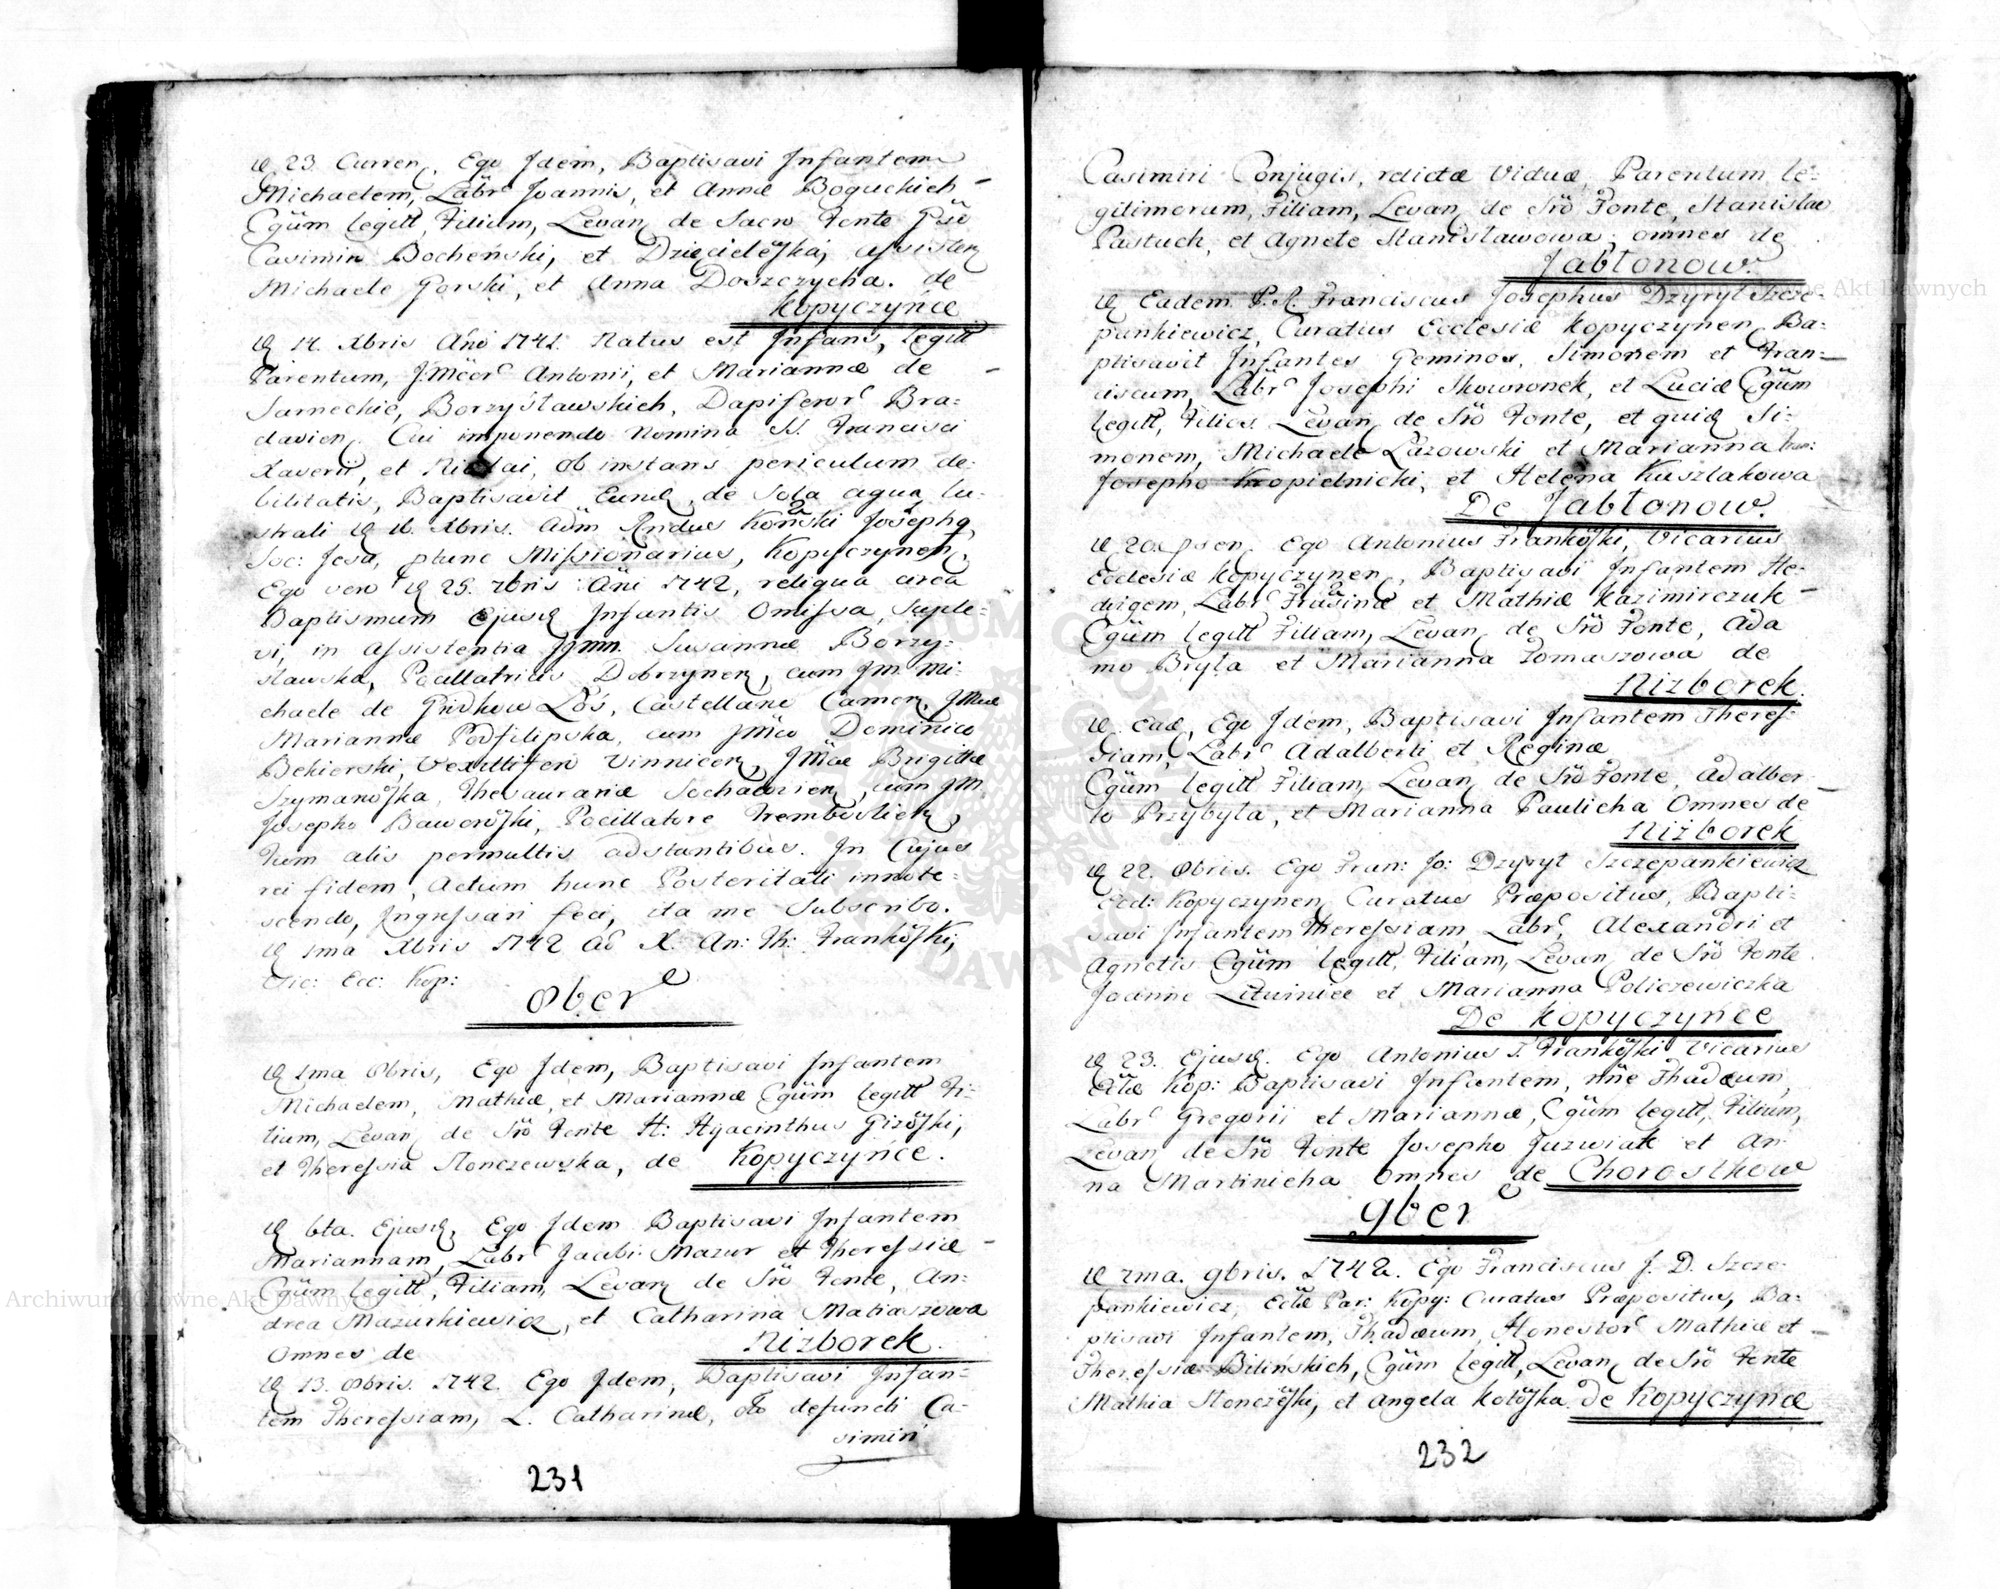 D. 23. Curren. Ego Idem, Baptisavi Infantem
Michaelem, Labr. Joannis, et Annæ Boguckich
Cgũm legitt, Filium, Levan de Sacro Fonte Gsẽ
Casimiro Bocheński, et Dzięcielöska, assisten
Michaele Gorski, et Anna Doszczycha. de
Kopyczynce
D. 14. Xbris Año 1741. Natus est Infans, legitt
Parentum, J.Mcor. Antonii, et Mariannæ de
Sarneckie, Borzysławskich, Dapiferor. Bra:
clavien. Cui imponendo Nomina SS. Francisci
Xaverii, et Nicolai, ob instans periculum de:
bilitatis, Baptisavit Eund, de Sola aqua lu:
strali D. Xbris. Adm Rndus Koński Joseph9,
Soc: Jesu, ptunc Missionarius, Kopyczynen,
Ego vero D. 25. 7bris Añi 1742, reliqua circa
Baptismum Ejusd Infantis Omissa, Suple:
vi, in Assistentia Susannæ Borzy:
sławska, Pocillatricis Dobrzynen, cum Jm. Mi:
chaele de Łoś, Castellano Camen,
Mariannæ Podfilipska, cum Dominico
Bekierski, Vexillifero Vinnicen, Brigittæ
Szymanöska, Thesaurariæ Sochaczien, cum JM.
Josepho Baworöski, Pocillatore Tremboslien,
Tum aliis permultis adstantibus. In Cujus
rei fidem, Actum hunc Posteritati innote:
scendo, Ingrossari feci, ita me Subscribo.
D. 1ma Xbris 1742 X. An: Th: Franköski,
Vic: Ecc: Kop:
8ber
D. 1ma 8bris, Ego Idem, Baptisavi Infantem
Michaelem, Mathiæ, et Mariannæ Cgũm legitt Fi:
lium, Levan de Srõ Fonte H: Hyacinthus Gizöski,
et Theressia Słonczewska, de Kopyczynce.
D. 6ta. Ejusd, Ego Idem Baptisavi Infantem
Mariannam, Labr. Jacobi Mazur et Theressiæ
Cgũm legitt, Filiam, Levan de Srõ Fonte, An:
drea Mazurkiewicz, et Catharina Matiaszowa
Omnes de Nizborek.
D. 13. 8bris. 1742. Ego Idem, Baptisavi Infan:
tem Theressiam, L. Catharinæ, olĩ defuncti Ca:
simiri
231
Casimiri Conjugis, rdictæ Viduæ, Parentum le:
gitimorum, Filiam, Levan de Srõ Fonte, Stanislao
Pastuch, et Agnete Stanisławowa, omnes de
Jabłonow.
D. Eadem. P.R. Franciscus Josephus Dzyryt Szcze:
pankiewicz, Curatus Ecclesiæ Kopyczynen, Ba:
ptisavit Infantes Geminos, Simonem et Fran:
ciscum, Labr. Josephi Skowronek, et Luciæ Cgũm
legitt, Filios Levan de Srõ Fonte, et quid. Si:
monem, Michaele Łazowski, et Marianna Fran:
Josepho Kropielnicki, et Helena Kuszlakowa
De Jabłonow.
D. 20. psen. Ego Antonius Franköski, Vicarius
Ecclesiæ Kopyczynen, Baptisavi Infantem He:
dvigem, Labr. et Mathiæ Kazimirczuk
Cgũm legitt Filiam, Levan de Srõ Fonte, Ada
mo Bryła et Marianna Tomaszowa de
Nizborek.
D. Ead, Ego Idem, Baptisavi Infantem Theres:
siam, Labr. Adalberti et Reginæ
Cgũm legitt Filiam, Levan de Srõ Fonte, Adalber
to Przybyła, et Marianna Paulicha Omnes de
Nizborek
D. 22. 8bris. Ego Fran: Jo: Dzyryt Szczepankiewicz
Eccl: Kopyczynen Curatus Præpositus, Bapti:
savi Infantem Theressiam, Labr, Alexandri et
Agnetis Cgũm legitt, Filiam, Levan de Srõ Fonte
Joanne Lituiniec et Marianna Policzewiczka
De Kopyczynce
D. 23. Ejusd. Ego Antonius T. Franköski Vicarius
Kop: Baptisavi Infantem, nne Thadæum,
Labr. Gregorii et Mariannæ, Cgũm legitt, Filium,
Levan de Srõ Fonte Josepho Juzwiak et An
na Martinicha Omnes de Chorostkow
9ber
D. 7ma. 9bris. 1742. Ego Franciscus J. D. Szcze:
pankiewicz, Par: Kopy: Curatus Præpositus, Ba:
ptisavi Infantem, Thadæum, Honestor Mathiæ et
Theressiæ Bilińskich, Cgũm legitt, Levan de Srõ Fonte
Mathia Słonczöski, et Angela Kotöska de Kopyczynce
232
Archiwum Główne Akt Dawnych